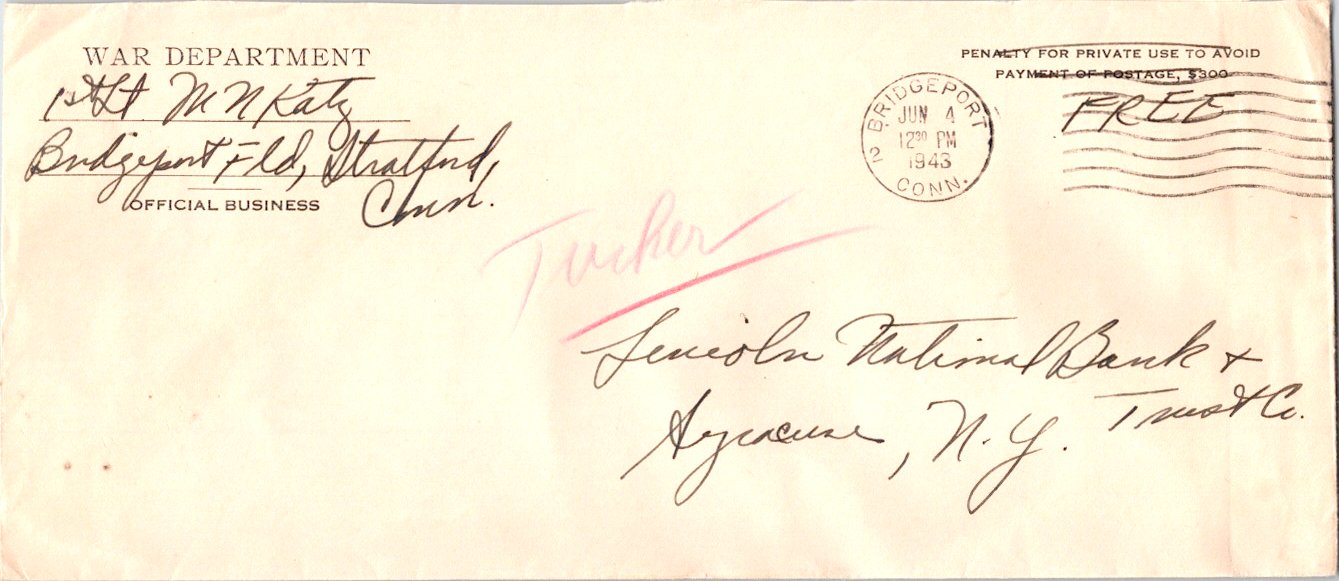 WAR DEPARTMENT
1st Lt M N Katz
Bridgeport Fld, Stratford,
Conn.
OFFICIAL BUSINESS
PENALTY FOR PRIVATE USE TO AVOID
PAYMENT OF POSTAGE, $300
FREE
BRIDGEPORT
JUN 4
12 30 PM
1943
2
CONN.
Tucker
Lincoln National Bank +
Trust Co.
Syracuse, N.Y.